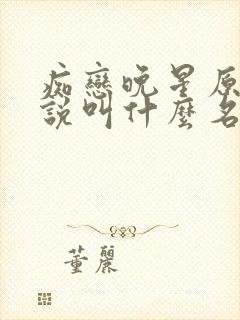 痴戀晚星原
說叫什麼名
董麗